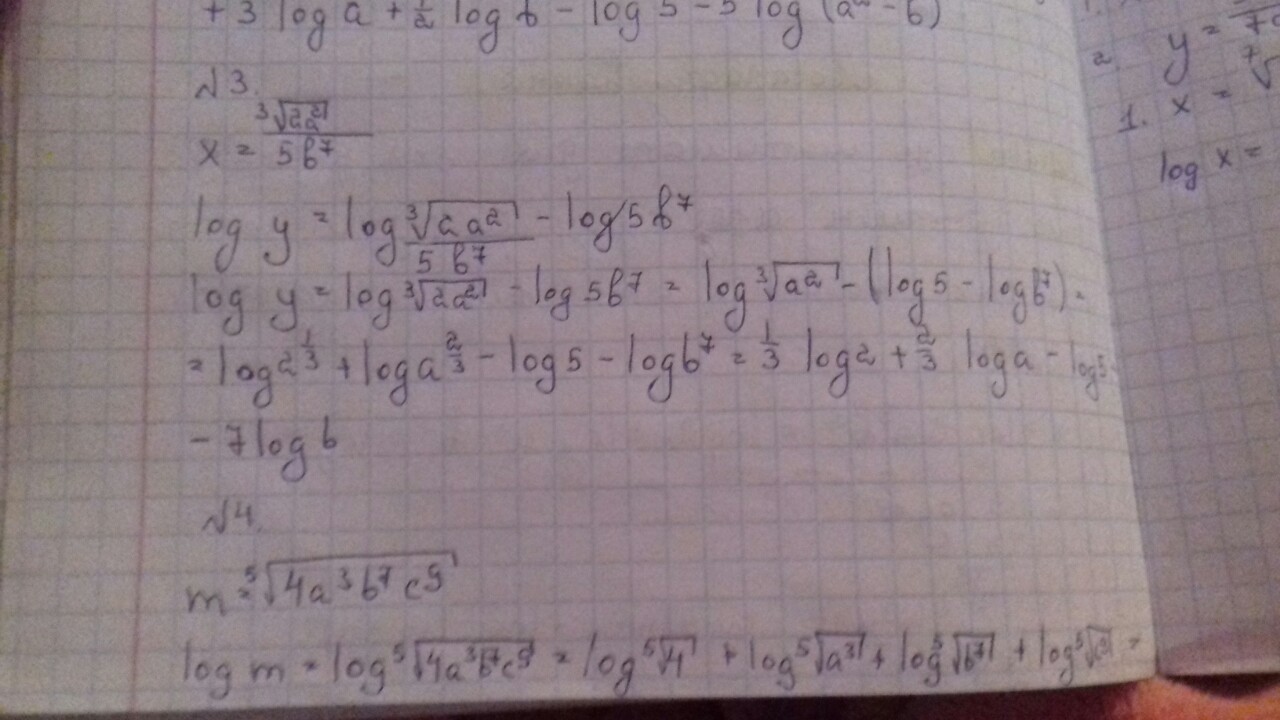 + 3 log a + 1/2 log b - log 5 - 5 log (a² - b)
№3.
x = ∛(2a²) / 5b⁷
log y = log ∛(2a²) / 5b⁷ - log 5b⁷
log y = log ∛(2a²) - log 5b⁷ = log ∛(a²) - (log 5 - log b⁷) =
= log 2^(1/3) + log a^(2/3) - log 5 - log b⁷ = 1/3 log 2 + 2/3 log a - log 5 -
- 7 log b
№4.
m = ⁵√(4a³b⁷c⁹)
log m = log ⁵√(4a³b⁷c⁹) = log ⁵√4 + log ⁵√(a³) + log ⁵√(b⁷) + log ⁵√(c⁹) =
1.
2. y =
1. x =
log x =